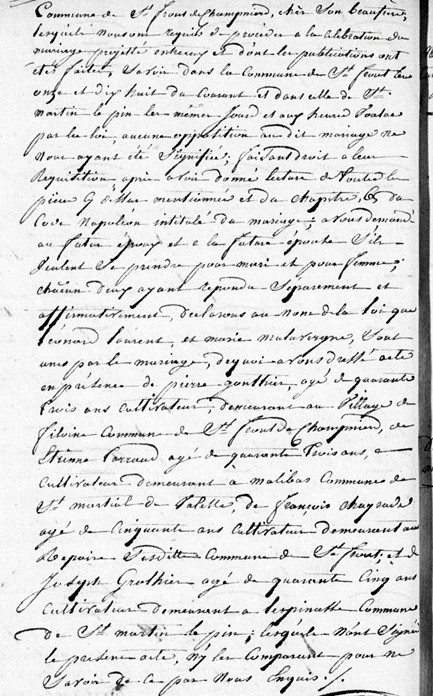 Commune de St frons de Champniers, chès Son beaufrère,
lesquels nous ont requis de proceder a la Celebration du
mariage projetté entre eux et dont les publications ont
étés faites, Savoir dans la Commune de St front les
onze et dix huit du Courant et dans celle de St
martin le pin les mêmes Jours et aux heures voulue
par la loi, aucune opposition au dit mariage ne
nous ayant été Signifiée; faisant droit a leur
Requisition après avoir donné lecture de toute les
pieces Cy dessus mentionnées et du chapitre 6 du
Code Napoléon intitulé du mariage; avons demandé
au futur époux et a la future épouse S'ils
veulent Se prendre pour mari et pour femme;
chacun deux ayant repondu Separement et
affirmativement, declarons au nom de la loi que
Léonard laurent, et marie malavergne, Sont
unis par le mariage, dequoi avons dressé acte
en présence de pierre gonthier, agé de quarante
trois ans Cultivateur, demeurant au Village de
Commune de St front de Champnier, de
Etienne agé de quarante trois ans,
Cultivateur demeurant a malibas Commune de
St martial de Valette, de françois
agé de Cinquante ans Cultivateur demeurant au
Repaire Susditte Commune de St front, et de
Joseph Gonthier agé de quarante Cinq ans
Cultivateur demeurant a lespinasse Commune
de St martin le pin; lesquels n'ont Signé
le présent acte, Ny les Comparants pour ne
Savoir de Ce par Nous Enquis./.